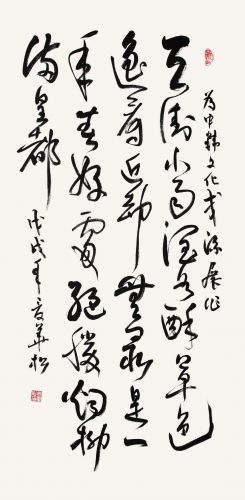 为中韩文化交流展作
天街小雨潤如酥草色
遥看近却無最是一
年春好處絶勝烟柳
满皇都
戊戌年華松